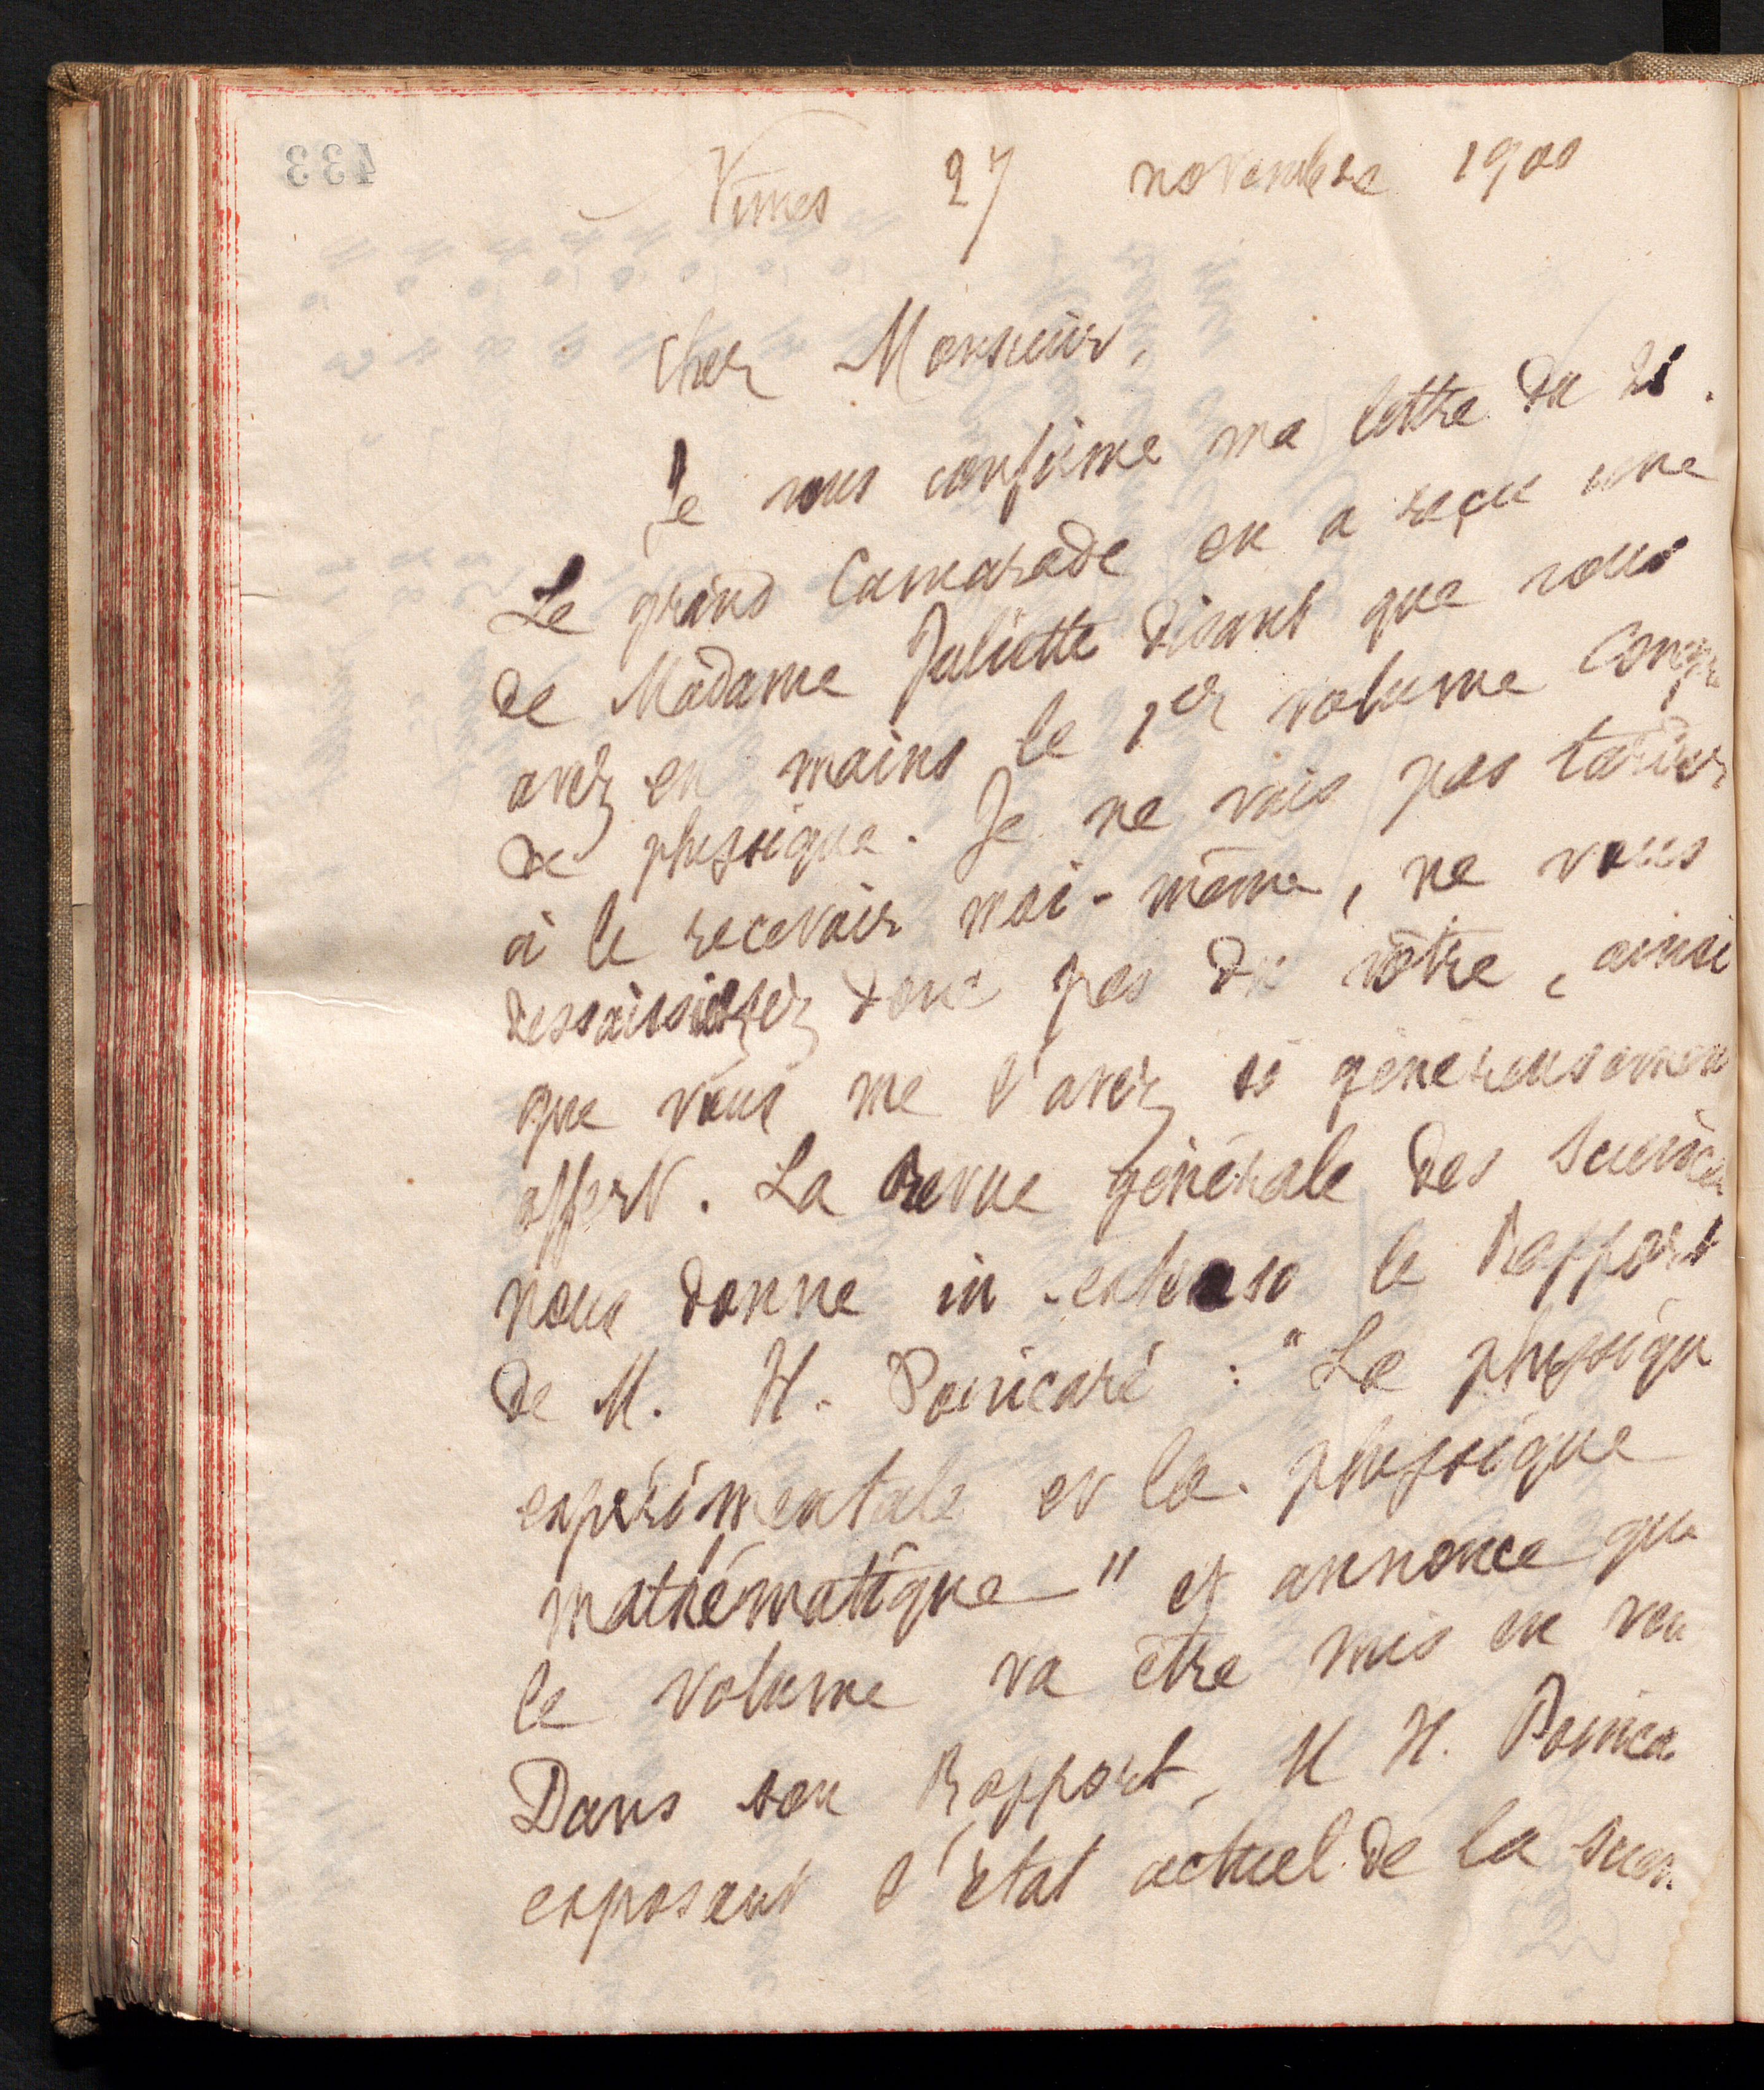 433
Nimes 27 novembre 1900
Cher Monsieur,
Je vous confirme ma lettre du 21.
Le grand Camarade en a reçu une
de Madame Juliette disant que vous
avez en mains le 1er volume Congr
de physique. Je ne vais pas tarder
à le recevoir moi-même, ne vous
dessaisissez donc pas du vôtre, ainsi
que vous me l'avez si généreusemen
offert. La revue générale des Sciences
nous donne in-extenso le Rapport
de M. H. Poincaré : "La physiqu
expérimentale et la physique
mathématique" et annonce que
le volume va être mis en ven
Dans son Rapport, M H. Poinca
exposant l'état actuel de la scien